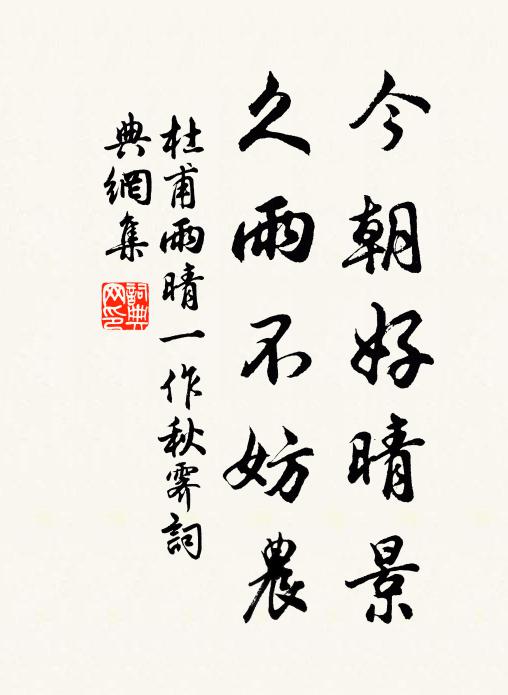 今朝好晴景
久雨不妨農
杜甫雨晴一作秋霽詞
典網集
詞典
网印